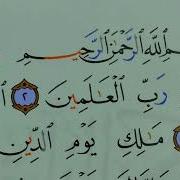 ٱللَّهِ ٱلرَّحۡمَٰنِ ٱلرَّحِيمِ
رَبِّ ٱلۡعَٰلَمِينَ ٢
مَٰلِكِ يَوۡمِ ٱلدِّينِ